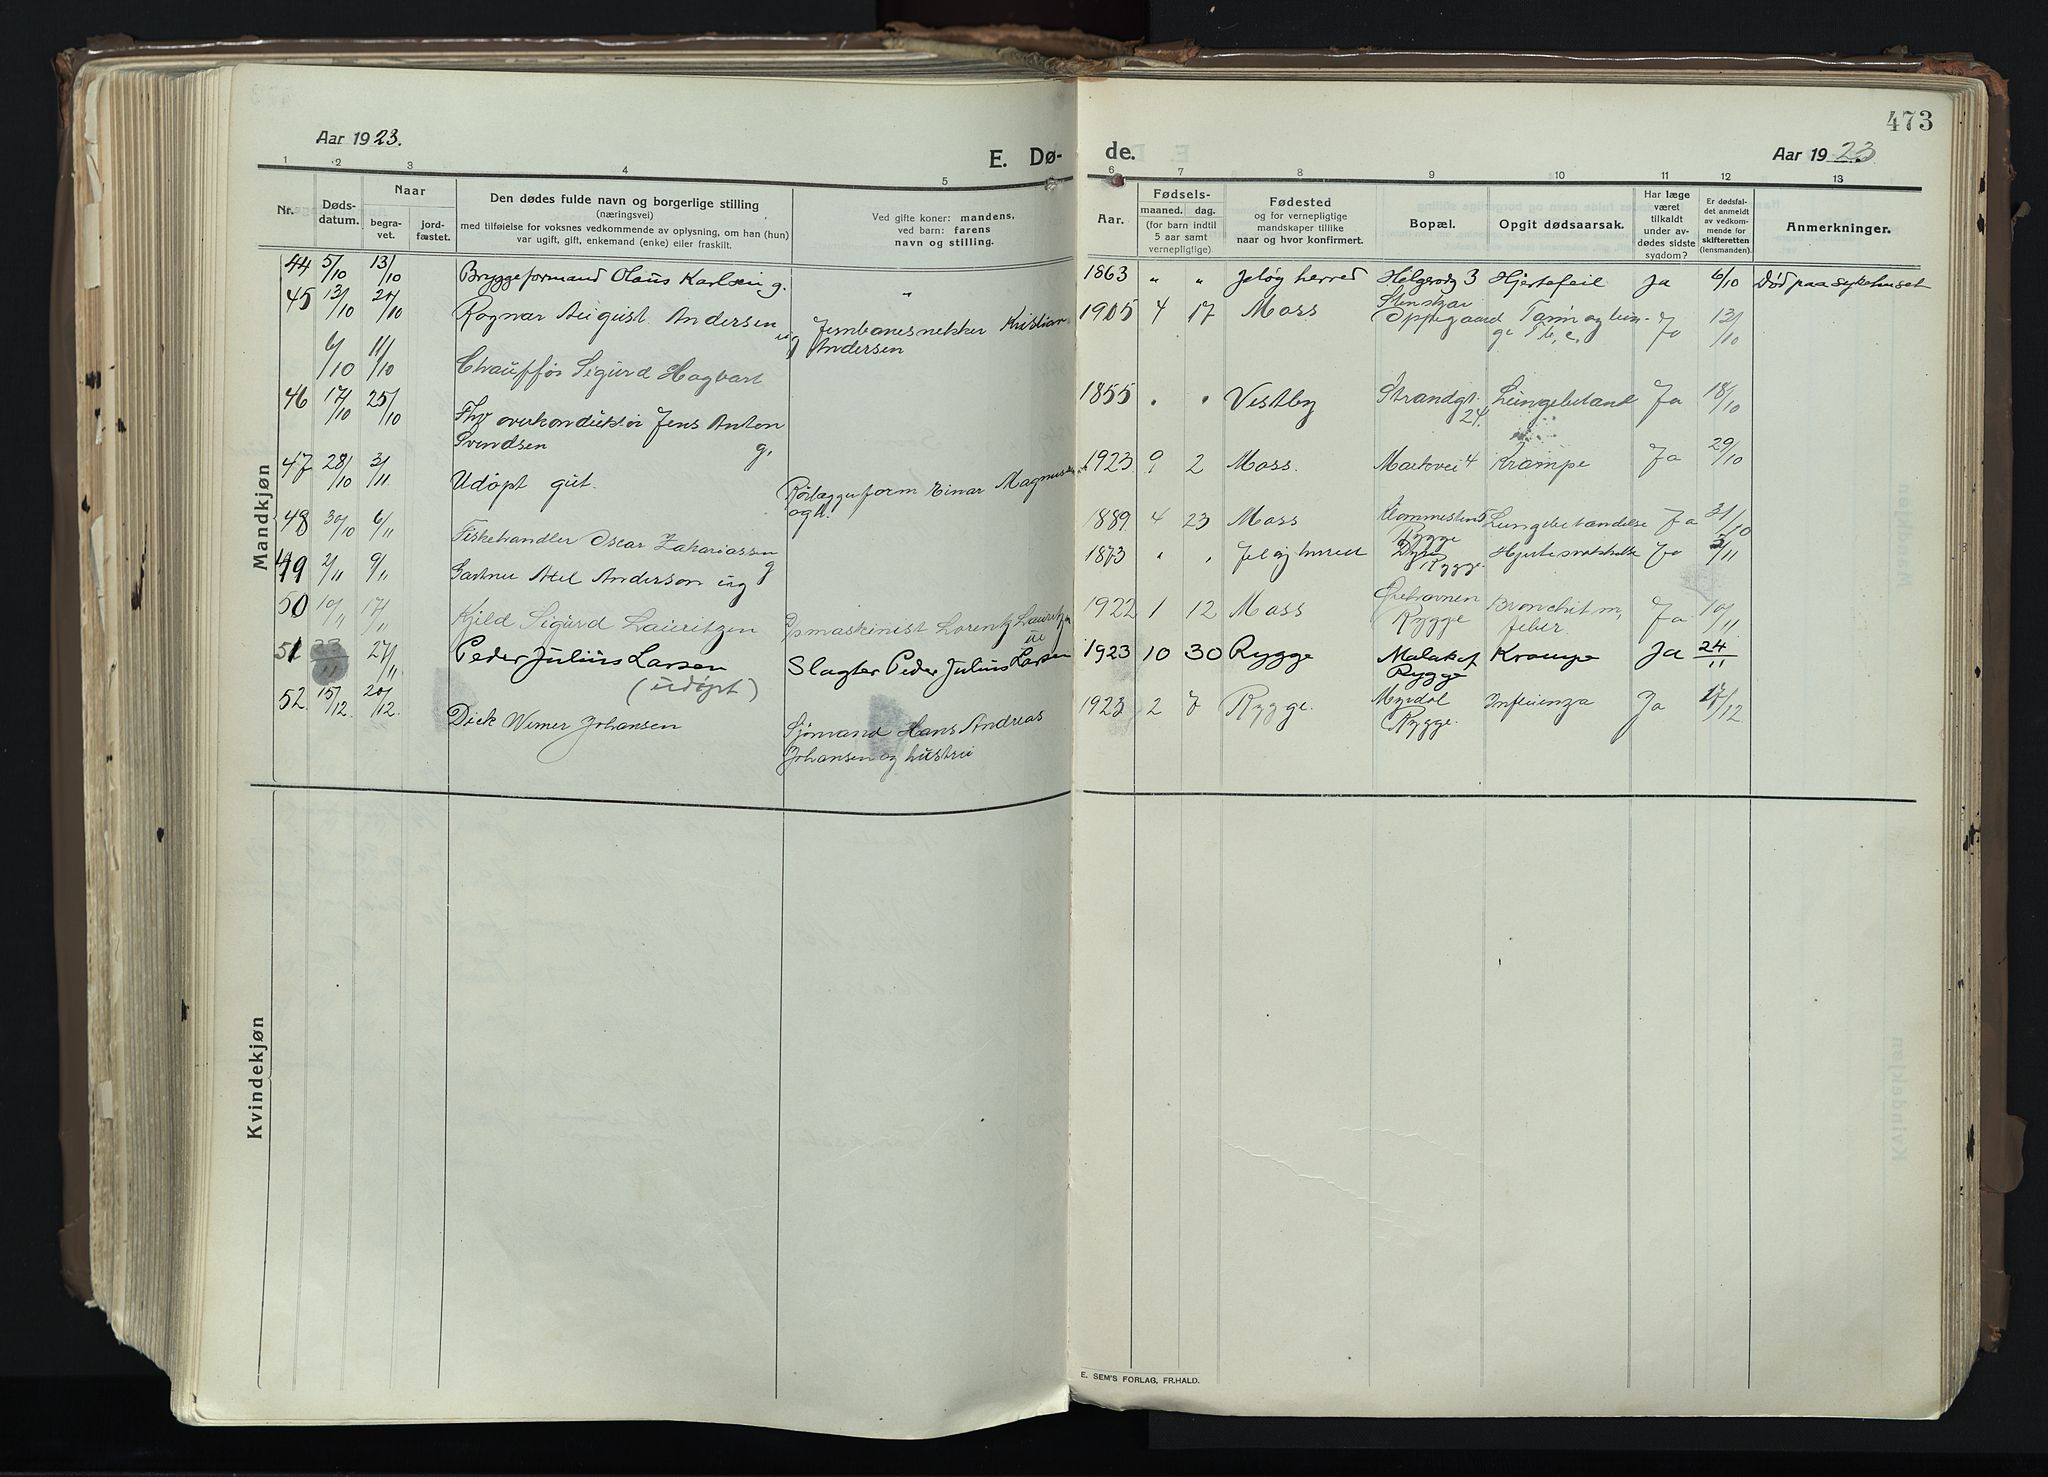 473
Aar 1923.
E. Dø-
de.
Aar 1923
1 2 3 4 5 6 7 8 9 10 11 12 13
Nr.
Døds-
datum.
Naar
begra-
vet.
jord-
fæstet.
Den dødes fulde navn og borgerlige stilling
(næringsvei)
med tilføielse for voksnes vedkommende av oplysning, om han (hun)
var ugift, gift, enkemand (enke) eller fraskilt.
Ved gifte koner: mandens,
ved barn: farens
navn og stilling.
Aar.
Fødsels-
maaned. dag.
(for barn indtil
5 aar samt
vernepligtige)
Fødested
og for vernepligtige
mandskaper tillike
naar og hvor konfirmert.
Bopæl.
Opgit dødsaarsak.
Har læge
været
tilkaldt
under av-
dødes sidste
sygdom?
Er dødsfal-
det anmeldt
av vedkom-
mende for
skifteretten
(lensmanden).
Anmerkninger.
Mandkjøn
44 5/10 13/10 Bryggeformand Olaus Karlsen g. " 1863 " " Jeløy herred Helgerødg 3 Hjertefeil Ja 6/10 Død paa sykehuset
45 13/10 20/10 Ragnar August Andersen ug Jernbanesnekker Kristian
Andersen 1905 4 17 Moss Stenskar
Oppegaard Tarm og lun-
ge Tb.c. Ja 13/10
6/10 11/10 Chauffør Sigurd Hagbart
46 17/10 25/10 Fhv overkonduktør Jens Anton
Svendsen g. 1855 " " Vestby Strandgt.
24. Lungebetænd Ja 18/10
47 28/10 3/11 Udøpt gut. Rørlæggerform Einar Magnussen
og h. 1923 9 2 Moss. Markvei 4 Krampe Ja 29/10
48 30/10 6/11 Fiskehandler Oscar Zakariassen g 1889 4 23 Moss Klommesten 5
Rygge Lungebetændelse Ja 31/10
49 2/11 9/11 Gartner Axel Anderson ug 1873 " " Jeløy herred Dyre
Rygge Hjertesvakhelse Ja 3/11
50 10/11 17/11 Kjeld Sigurd Lauritzen Dpsmaskinist Lorentz Lauritzen 1922 1 12 Moss Ørehavnen
Rygge Bronchit m,
feber. Ja 10/11
51 23/11 27/11 Peder Julius Larsen
(udøpt) Slagter Peder Julius Larsen 1923 10 30 Rygge Malakof
Rygge Krampe Ja 24/11
52. 15/12 20/12. Dick Werner Johansen Sjømand Hans Andreas
Johansen og hustru 1923 2 7 Rygge. Myrdal
Rygge. Influenza Ja 17/12
Kvindekjøn
E. SEM'S FORLAG, FR.HALD.